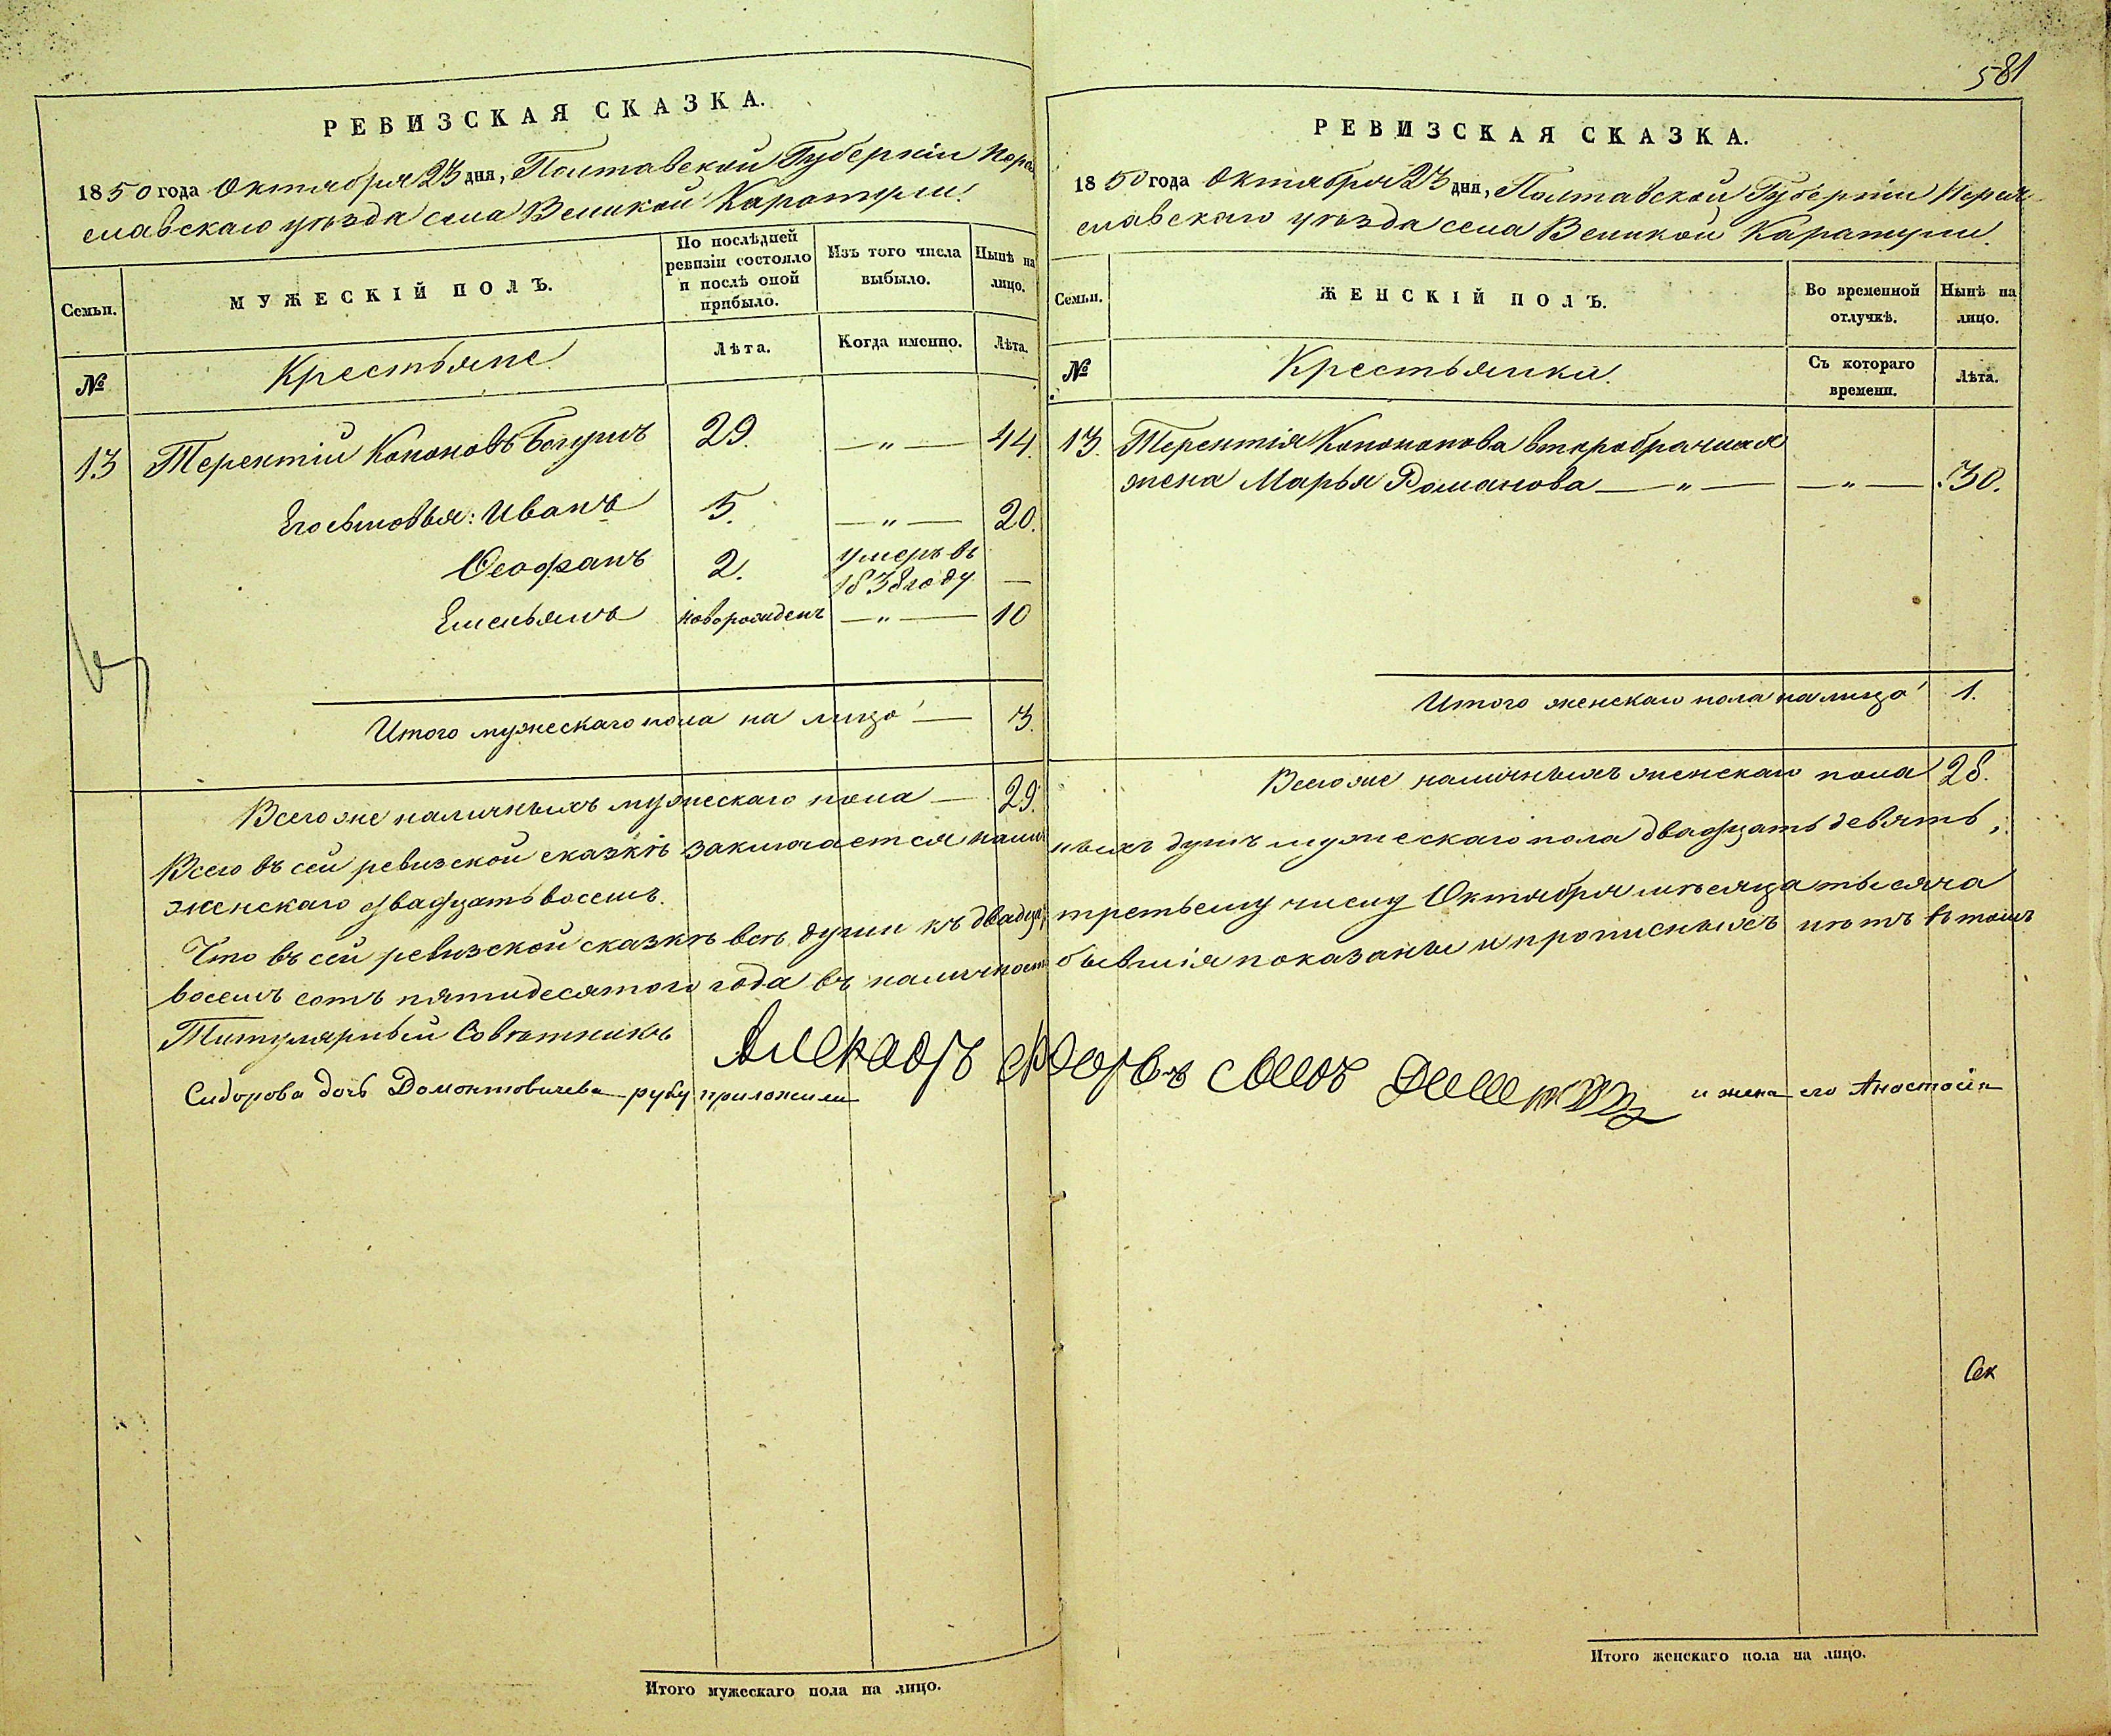 РЕВИЗСКАЯ СКАЗКА.
1850 года Октября 23 дня, Полтавской Губерніи Пере
славскаго уѣзда села Великой Каратули.
Семьи.
МУЖЕСКІЙ ПОЛЪ.
По послѣдней
ревизіи состояло
и послѣ оной
прибыло.
Изъ того числа
выбыло.
Нынѣ на
лицо.
№
Крестьяне
Лѣта.
Когда именно.
Лѣта.
13 Терентій Кононовъ 29. — „ — 44.
Его сыновья: Иванъ 5. — „ — 20.
Ѳеофанъ 2. умеръ въ
1838 году —
Емельянъ новорожденъ — „ — 10
Итого мужескаго пола на лицо — 3.
Всего же наличныхъ мужескаго пола — 29.
Всего въ сей ревизской сказкѣ заключается налич
женскаго двадцать восемь.
Что въ сей ревизской сказкѣ всѣ души къ двадцать
восемь сотъ пятидесятого года въ наличности
Титулярный Совѣтникъ
Сидорова дочь Домонтовичева руку приложили
Итого мужескаго пола на лицо.
581
РЕВИЗСКАЯ СКАЗКА.
1850 года Октября 23 дня, Полтавской Губерніи Перея
славскаго уѣзда села Великой Каратули.
Семьи.
ЖЕНСКІЙ ПОЛЪ.
Во временной
отлучкѣ.
Нынѣ на
лицо.
№
Крестьянки.
Съ котораго
времени.
Лѣта.
13. Терентія Кононова второбрачная
жена Марья Романова — „ — — „ — 30.
Итого женскаго пола на лицо 1.
Всего же наличныхъ женскаго пола 28.
ныхъ душъ мужескаго пола двадцать девять,
третьему числу Октября мѣсяца тысяча
бывшія показаны и прописныхъ нѣтъ въ томъ
сынъ
и жена его Анастасія
Сек
Итого женскаго пола на лицо.